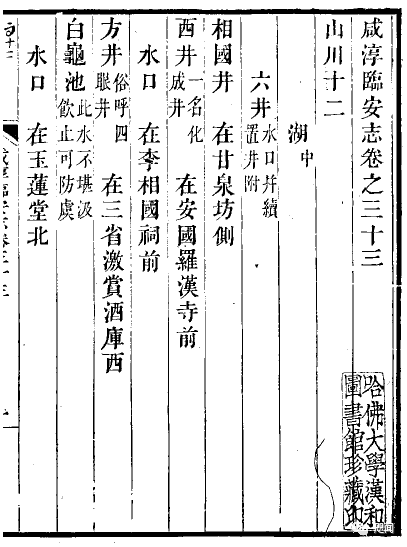 咸淳臨安志卷之三十三
山川十二
湖中
六井 水口并續置井附
相國井 在甘泉坊側
西井 一名化成井 在安國羅漢寺前
水口 在李相國祠前
方井 俗呼四眼井 在三省激賞酒庫西
白龜池 此水不堪汲飲止可防虞
水口 在玉蓮堂北
哈佛大學漢和
圖書館珍藏印